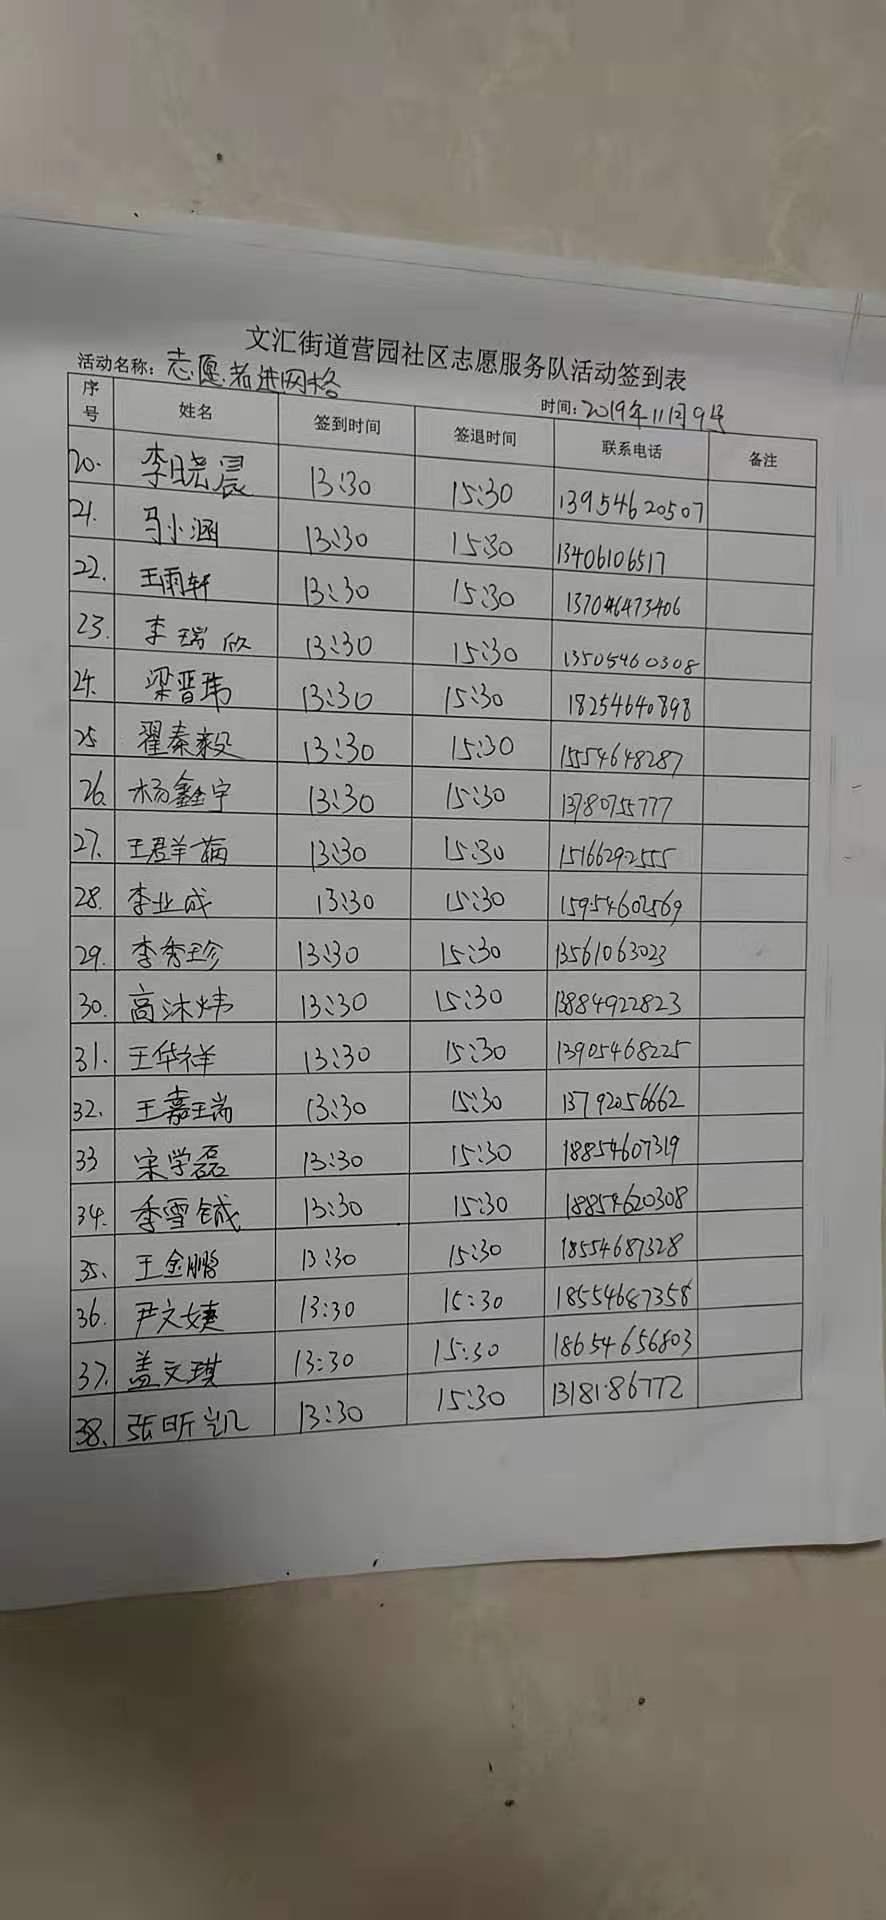 文汇街道营园社区志愿服务队活动签到表
活动名称：志愿者进网格 时间：2019年11月9号
序号 姓名 签到时间 签退时间 联系电话 备注
20. 李晓晨 13:30 15:30 13954620507
21. 马小涵 13:30 15:30 13406106517
22. 王雨轩 13:30 15:30 137046473406
23. 李瑞欣 13:30 15:30 13505460308
24. 梁晋玮 13:30 15:30 18254640898
25 翟秦毅 13:30 15:30 15554648287
26. 杨鑫宇 13:30 15:30 13780755777
27. 王君羊 13:30 15:30 15166292555
28. 李业成 13:30 15:30 15954602569
29. 李秀珍 13:30 15:30 13561063023
30. 高沐炜 13:30 15:30 13884922823
31. 王华祥 13:30 15:30 13905468225
32. 王嘉瑞 13:30 15:30 13792056662
33 宋学磊 13:30 15:30 18854607319
34. 季雪铖 13:30 15:30 18854620308
35. 王金鹏 13:30 15:30 18554687328
36. 尹文婕 13:30 15:30 18554687358
37. 盖文琪 13:30 15:30 18654656803
38. 张昕凯 13:30 15:30 1318186772